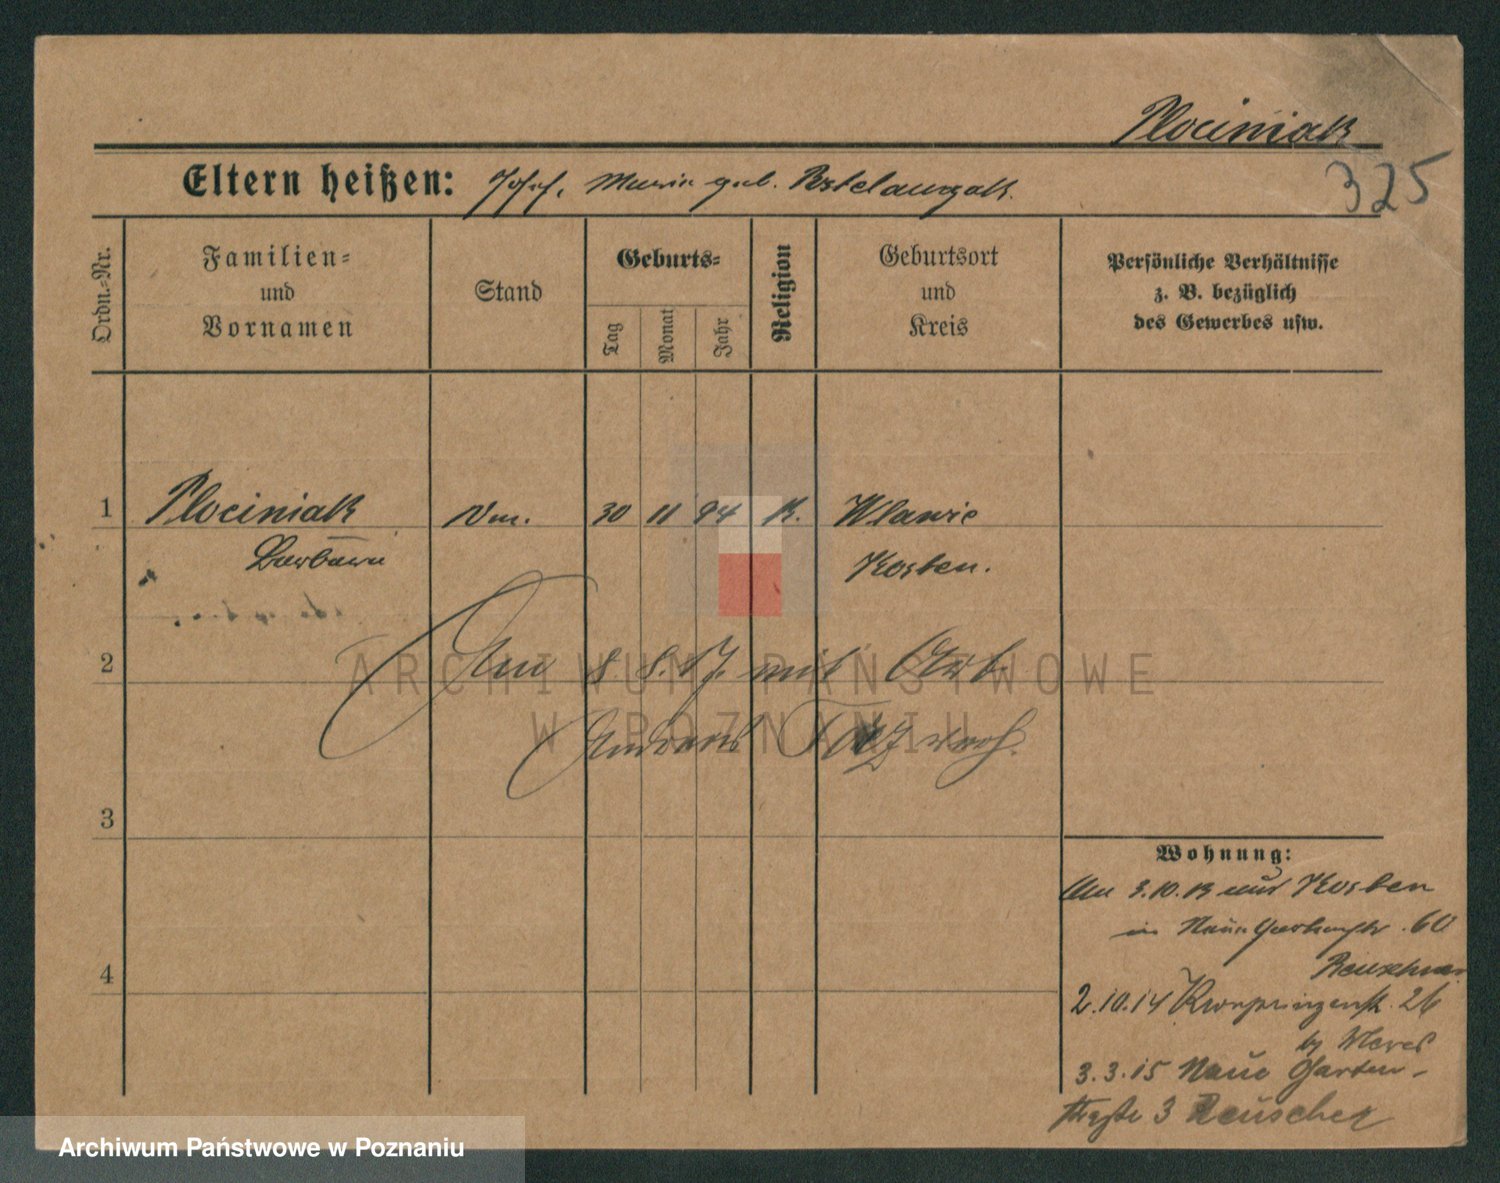 Plociniak
325
Eltern heißen: Josef, Maria geb.
Ordn.-Nr.
Familien- und Vornamen
Stand
Geburts-
Tag
Monat
Jahr
Religion
Geburtsort und Kreis
Persönliche Verhältnisse
z. B. bezüglich
des Gewerbes usw.
1 Plociniak 30 11 94 K.
Barbara Kosten.
2 Am 8. 8. 17. mit Arb.
3
Wohnung:
Am 3.10.13 aus Kosten
in Neue Gartenstr. 60
4
2.10.14 Kronprinzenstr. 26
3.3.15 Neue Garten-
straße 3 Reuscher
ARCHIWUM PAŃSTWOWE
W POZNANIU
Archiwum Państwowe w Poznaniu